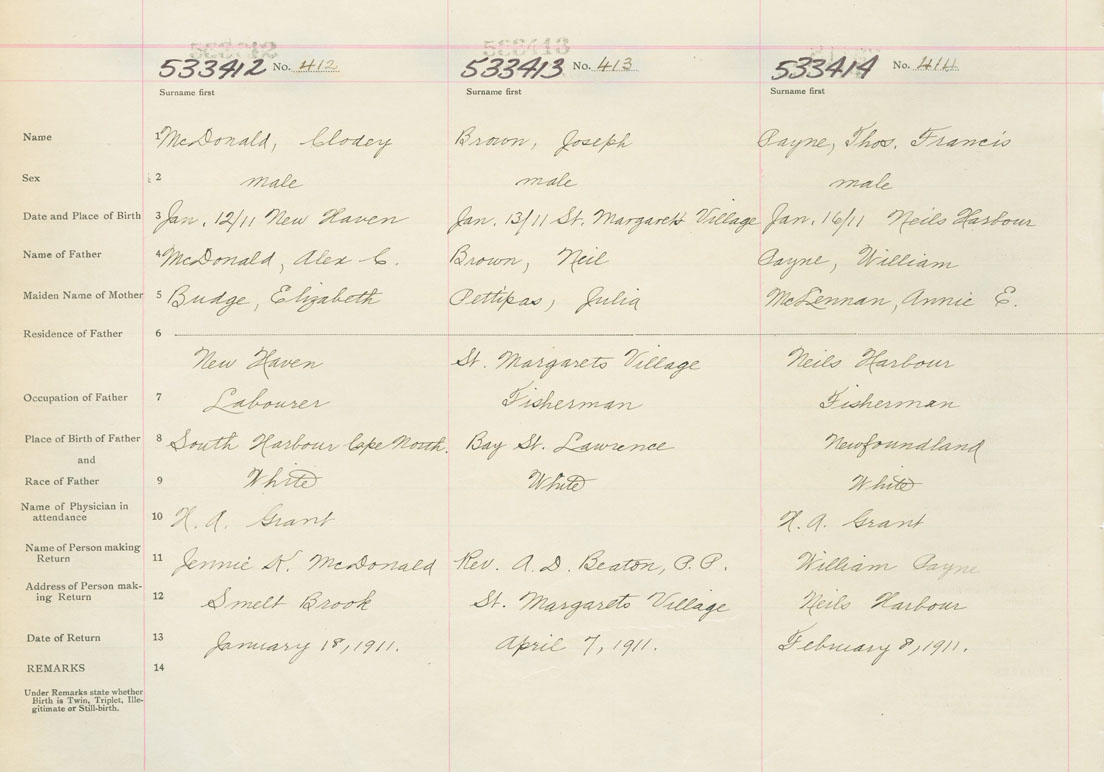 533412 533413
533412 No. 412 533413 No. 413 533414 No. 414
Surname first Surname first Surname first
Name 1 McDonald, Clodey Brown, Joseph Payne, Thos. Francis
Sex 2 male male male
Date and Place of Birth 3 Jan. 12/11 New Haven Jan. 13/11 St. Margarets Village Jan. 16/11 Neils Harbour
Name of Father 4 McDonald, Alex C. Brown, Neil Payne, William
Maiden Name of Mother 5 Budge, Elizabeth Pettipas, Julia McLennan, Annie E.
Residence of Father 6
New Haven St. Margarets Village Neils Harbour
Occupation of Father 7 Labourer Fisherman Fisherman
Place of Birth of Father 8 South Harbour Cape North. Bay St. Lawrence Newfoundland
and
Race of Father 9 White White White
Name of Physician in
attendance 10 H. A. Grant H. A. Grant
Name of Person making
Return 11 Jennie K. McDonald Rev. A. D. Beaton, P.P. William Payne
Address of Person mak-
ing Return 12 Smelt Brook St. Margarets Village Neils Harbour
Date of Return 13 January 18, 1911. April 7, 1911. February 8, 1911.
REMARKS 14
Under Remarks state whether
Birth is Twin, Triplet, Ille-
gitimate or Still-birth.